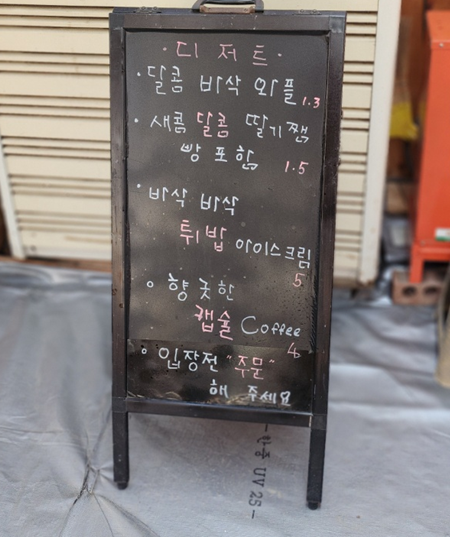 · 디 저 트 ·
· 달콤 바삭 와플 1.3
· 새콤 달콤 딸기쨈
빵 포함 1.5
· 바삭 바삭
튀밥 아이스크림
5
· 향긋한
캡슐 Coffee
4
· 입장전 "주문"
해 주세요
UV 25-